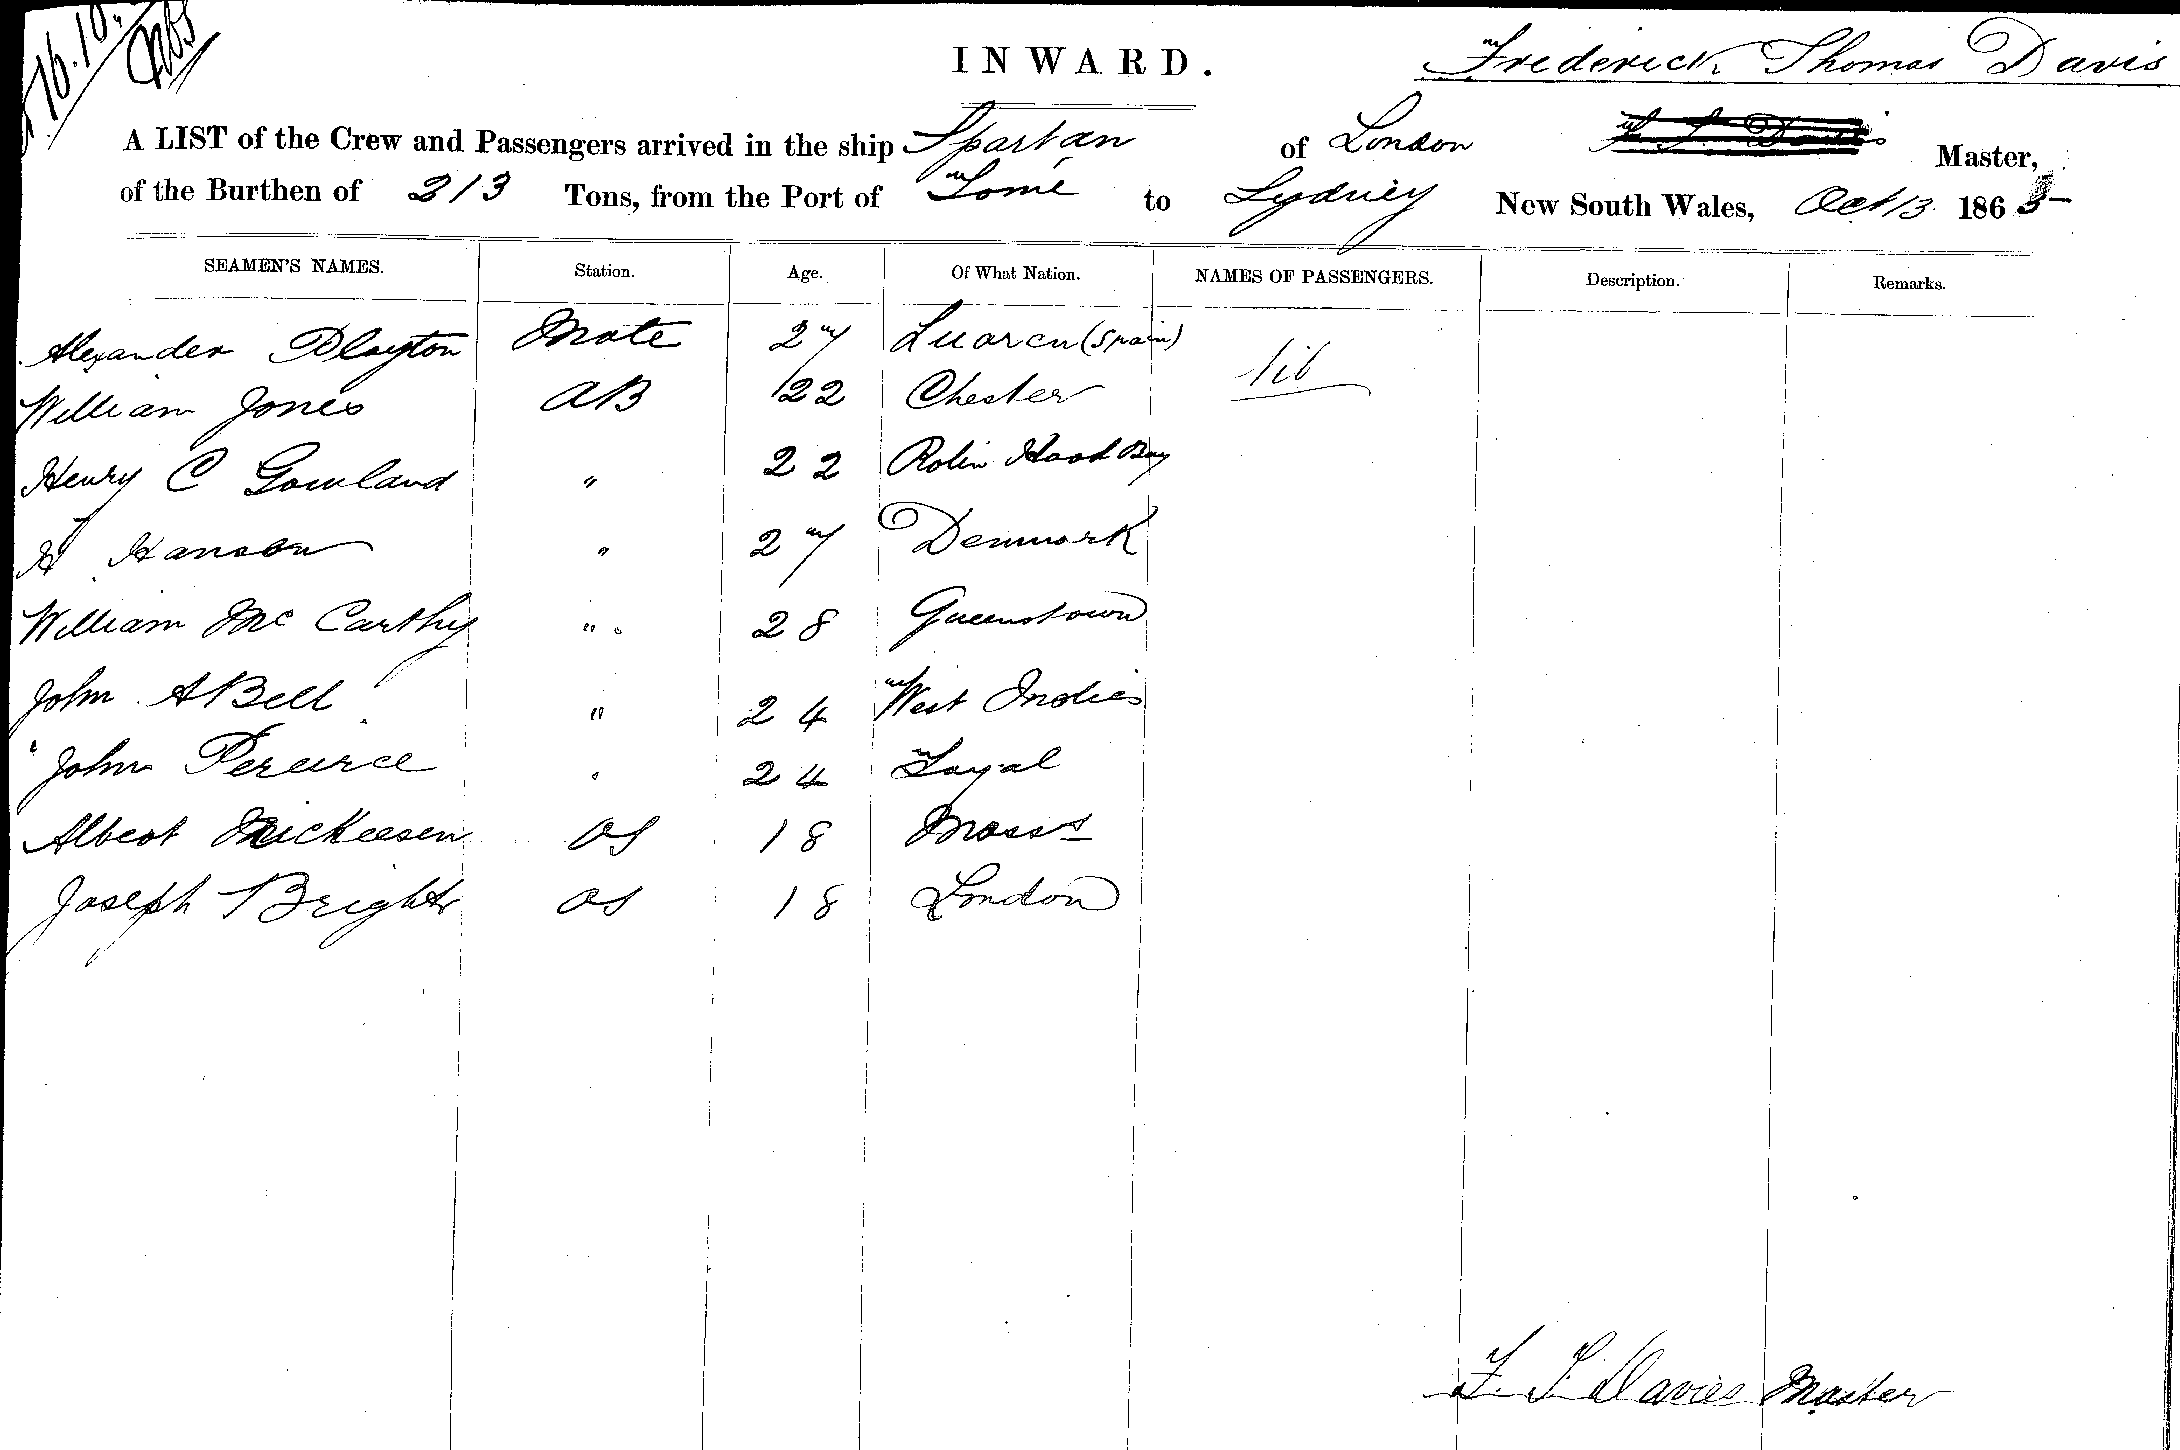 16.10.
INWARD.
Frederick Thomas Davis
A LIST of the Crew and Passengers arrived in the ship Spartan of London F T Davis Master,
of the Burthen of 213 Tons, from the Port of to Sydney New South Wales, Oct 13 1865
SEAMEN'S NAMES. Station. Age. Of What Nation. NAMES OF PASSENGERS. Description. Remarks.
Alexander Playton Mate 27 (Spain)
William Jones AB 22 Chester
Henry C Gowland " 22 Robin Hood Bay
H Hanson " 27 Denmark
William Mc Carthy " 28 Queenstown
John A Bell " 24 West Indies
John " 24 Fayal
Albert OS 18 Moss
Joseph Bright OS 18 London
F. T. Davies Master